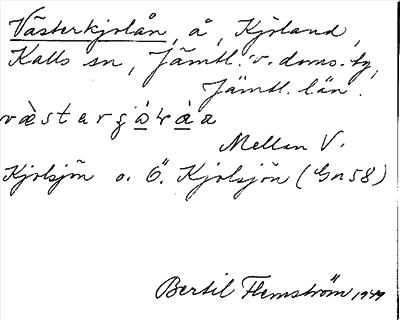 Västerkjolån, å, Kjoland,
Kalls sn, Jämtl. v. doms. tg,
Jämtl. län.
Mellan V.
Kjolsjön o. Ö. Kjolsjön (Gn58)
Bertil Flemström 1949